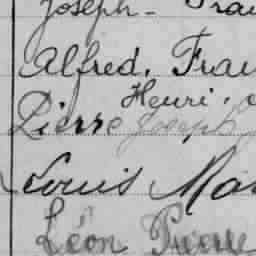 Joseph - Fran
Alfred. Fran
Henri.
Pierre Joseph
Louis Ma
Léon Pierre